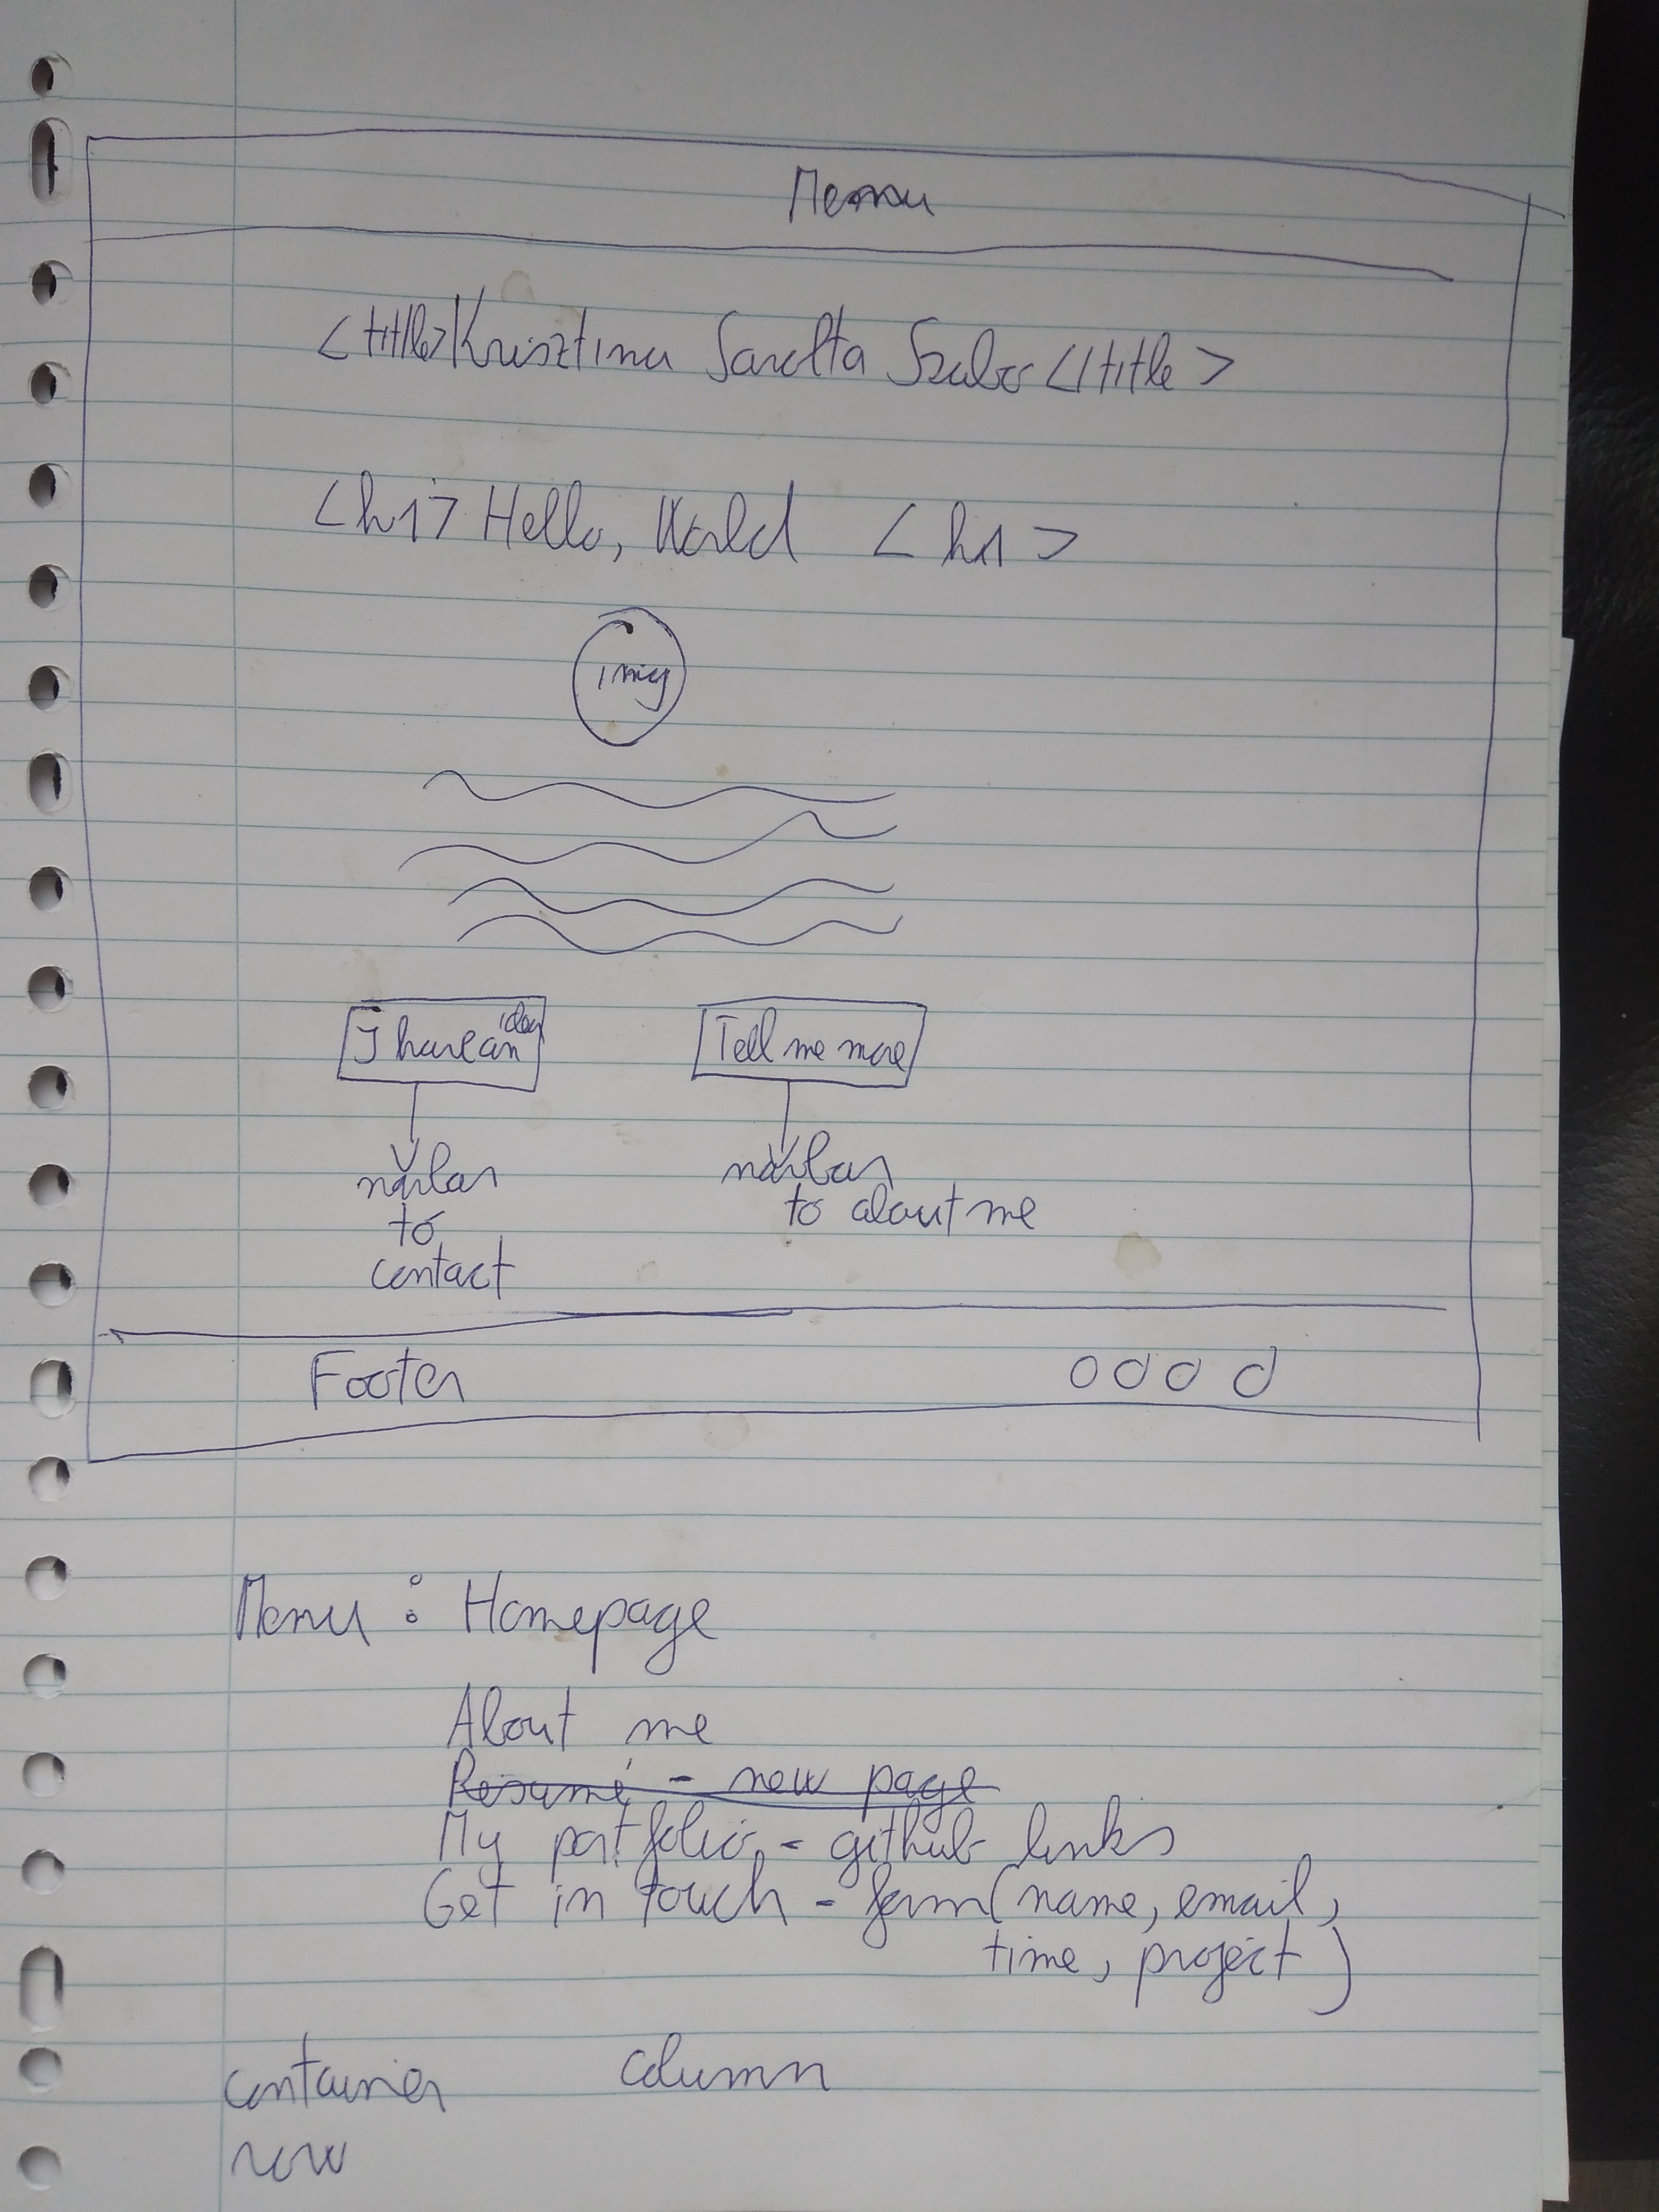 Menu
<title>Krisztina Sarolta Szabo </title>
<h1> Hello, World <h1>
img
I have an idea
Tell me more
navbar
to
contact
navbar
to about me
Footer
Menu : Homepage
About me
Resumé - new page
My portfolio - github links
Get in touch - form (name, email,
time, project)
container column
row